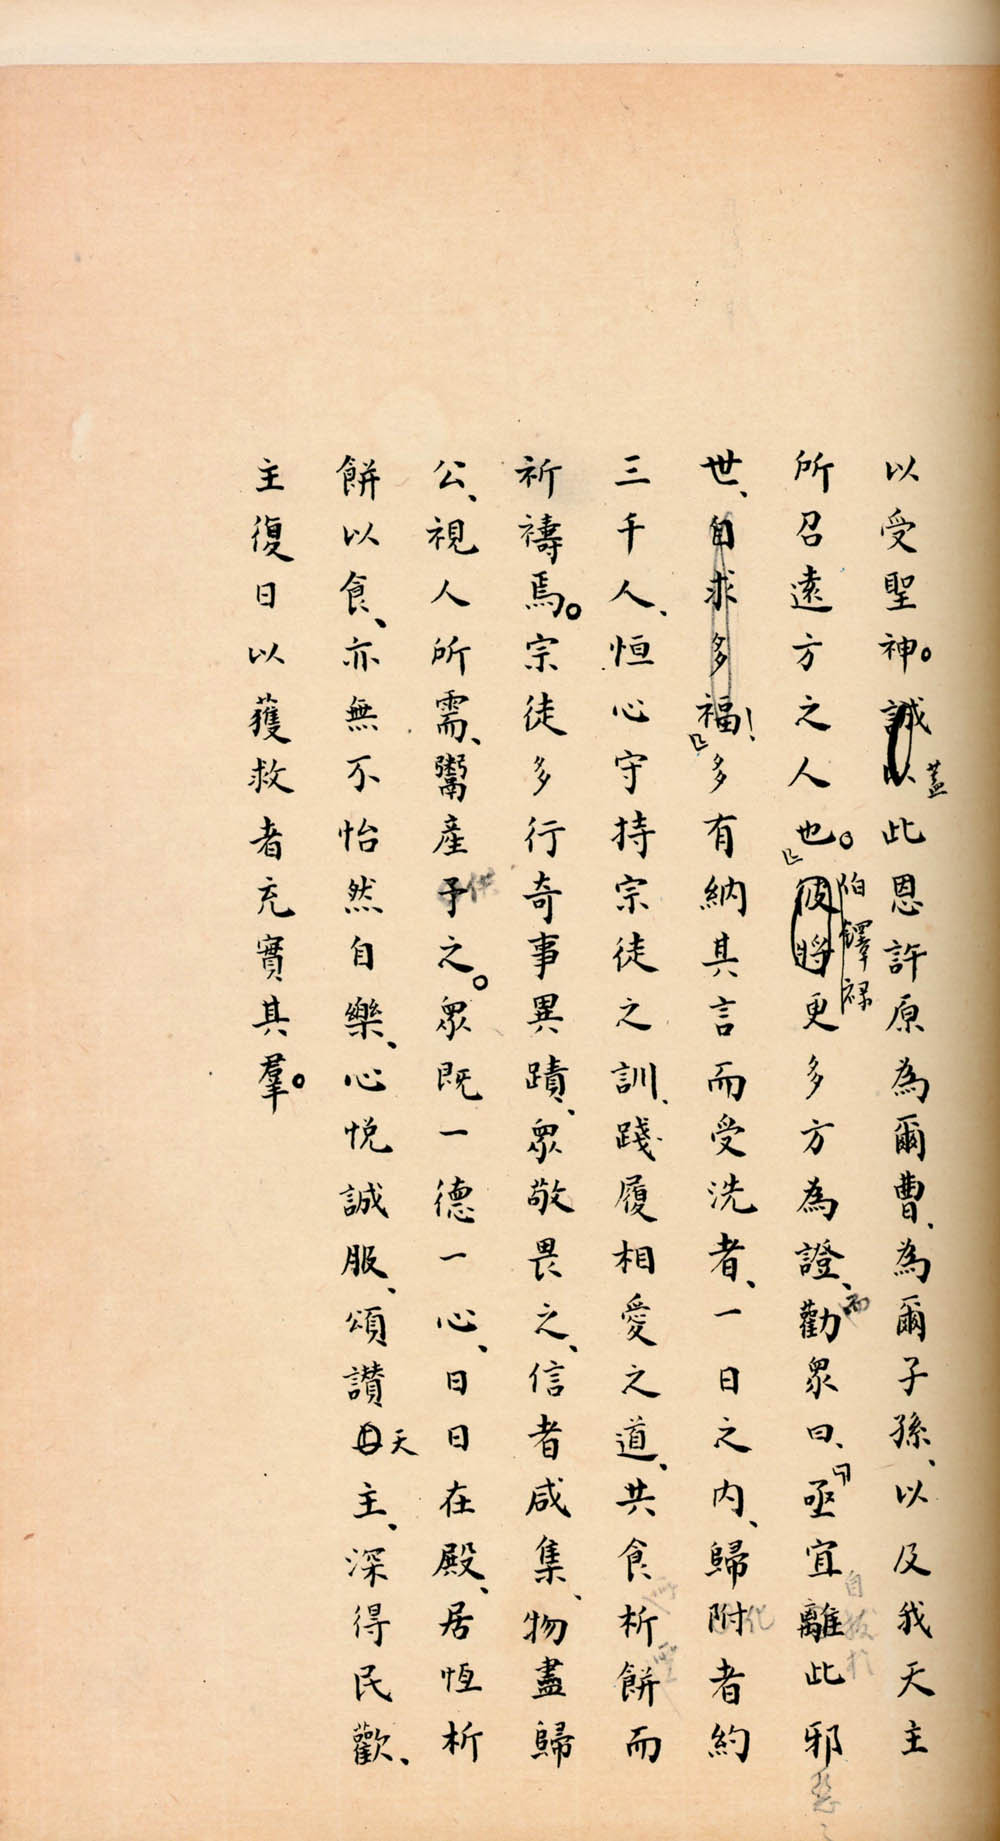 以受聖神。誠以蓋此恩許原為爾曹、為爾子孫、以及我天主
所召遠方之人也。」彼將伯鐸祿更多方為證、而勸衆曰、「亟宜離自拔於此邪惡
世、自求多福！」多有納其言而受洗者、一日之內、歸附化者約
三千人、恒心守持宗徒之訓、踐履相愛之道、共食析餅而
祈禱焉。宗徒多行奇事異蹟、衆敬畏之、信者咸集、物盡歸
公、視人所需、鬻產予供之。衆既一德一心、日日在殿、居恆析
餅以食、亦無不怡然自樂、心悅誠服、頌讚天主、深得民歡、
主復日以獲救者充實其羣。